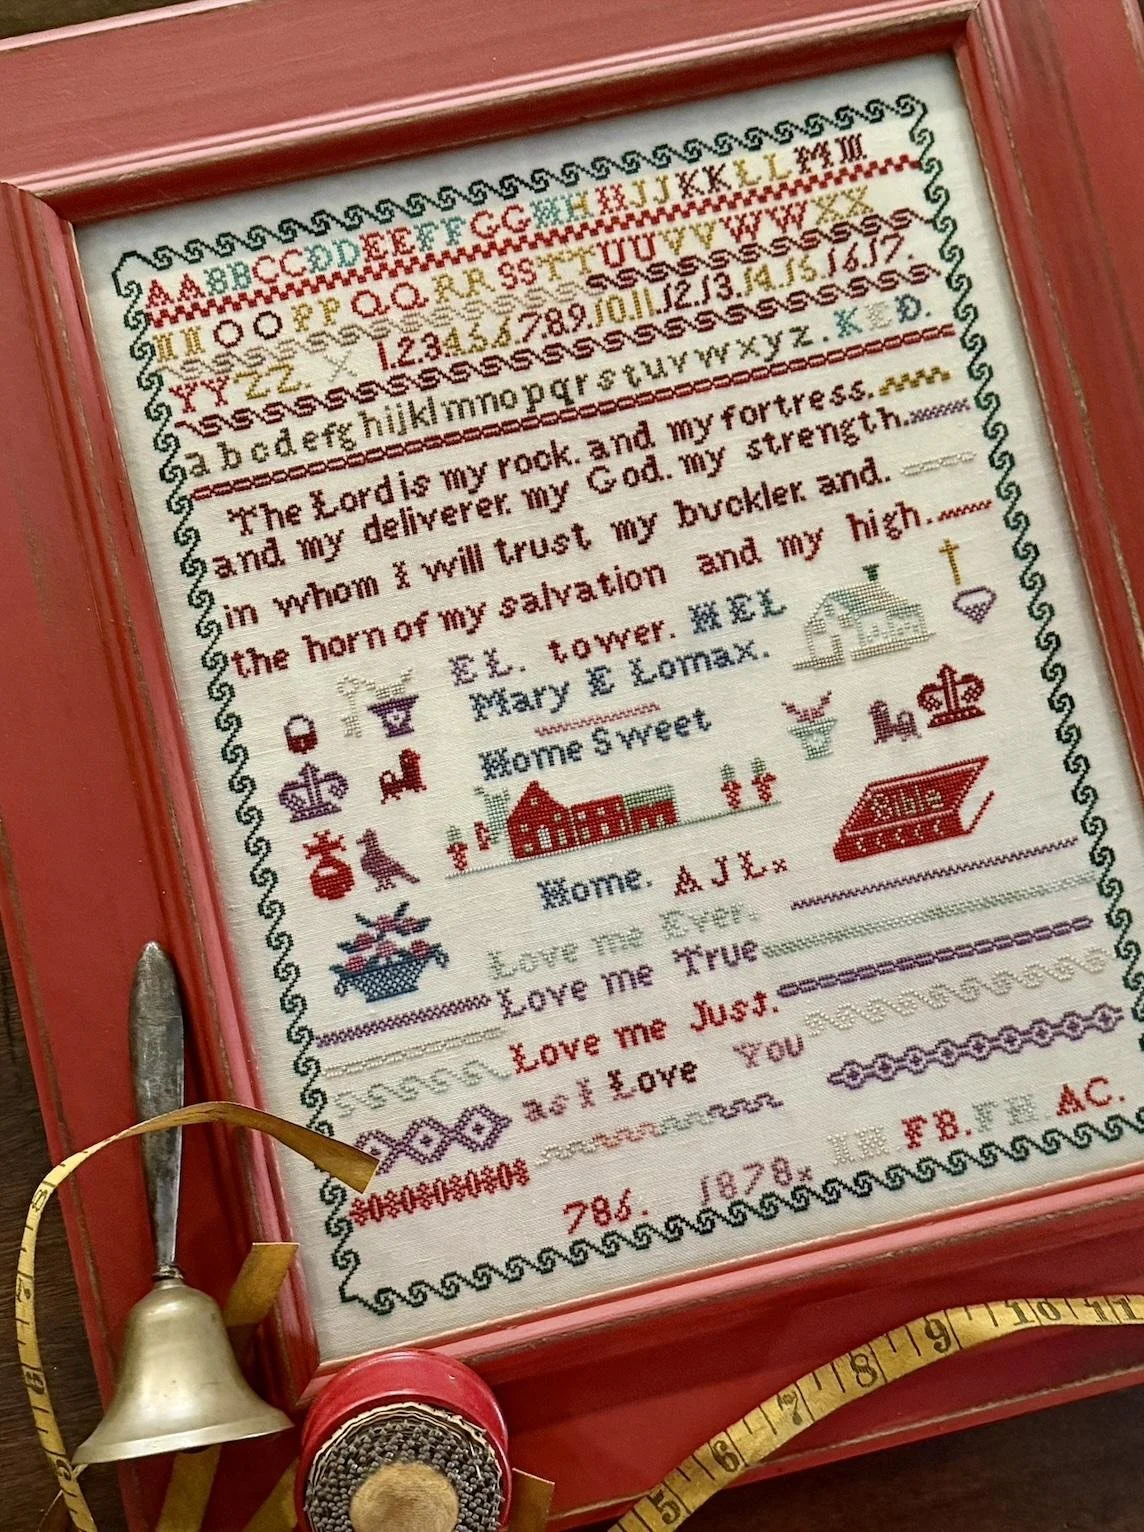 AABBCCDDEEFFGGHHIIJJKKLLMM
NNOOPPQQRRSSTTUUVVWWXX
YYZZ. X 1.2.3.4.6.6.7.8.9.10.11.12.13.14.15.16.17.
abcdefghijklmnopqrstuvwxyz. KED.
The Lord is my rock. and my fortress.
and my deliverer. my God. my strength.
in whom I will trust my buckler. and.
the horn of my salvation and my high.
EL. tower. HEL
Mary E Lomax.
Home Sweet
Bible
Home. AJLx
Love me Ever.
Love me True
Love me Just.
as I Love You
IH FB. FH AC.
786. 1878x
5 6 7 8 9 10 11